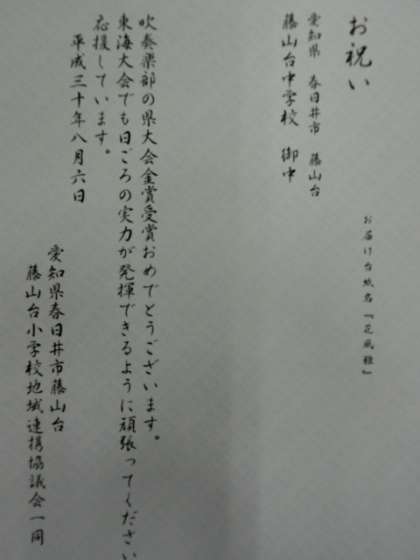 お届け台紙名『花風雅』
お祝い
愛知県 春日井市 藤山台
藤山台中学校 御中
吹奏楽部の県大会金賞受賞おめでとうございます。
東海大会でも日ごろの実力が発揮できるように頑張ってください
応援しています。
平成三十年八月六日
愛知県春日井市藤山台
藤山台小学校地域連携協議会一同